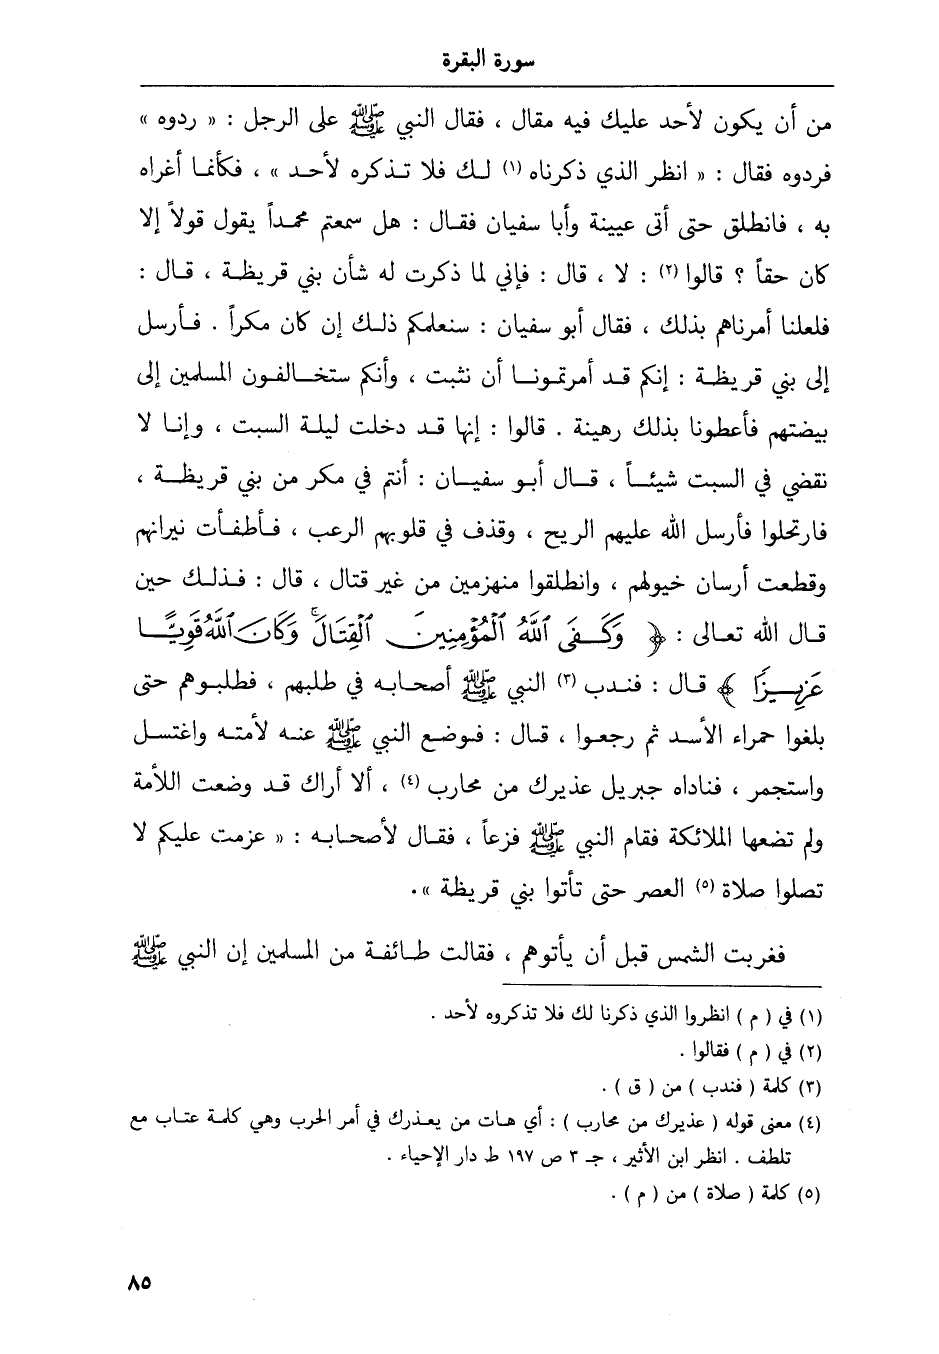 سورة البقرة
من أن يكون لأحد عليك فيه مقال ، فقال النبي ﷺ علي الرجل : « ردوه »
فردوه فقال : « انظر الذي ذكرناه (١) لك فلا تذكره لأحد » ، فكأنما أغراه
به ، فانطلق حتى أتى عيينة وأبا سفيان فقال : هل سمعتم محمداً يقول قولاً إلا
كان حقاً ؟ قالوا (٢) : لا ، قال : فإني لما ذكرت له شأن بني قريظة ، قال :
فلعلنا أمرناهم بذلك ، فقال أبو سفيان : سنعلمكم ذلك إن كان مكراً . فأرسل
إلى بني قريظة : إنكم قد أمرتمونا أن نثبت ، وأنكم ستخالفون المسلمين إلى
بيضتهم فأعطونا بذلك رهينة . قالوا : إنها قد دخلت ليلة السبت ، وإنا لا
نقضي في السبت شيئاً ، قال أبو سفيان : أنتم في مكر من بني قريظة ،
فارتحلوا فأرسل الله عليهم الريح ، وقذف في قلوبهم الرعب ، فأطفأت نيرانهم
وقطعت أرسان خيولهم ، وانطلقوا منهزمين من غير قتال ، قال : فذلك حين
قال الله تعالى : ﴿ وَكَفَى ٱللَّهُ ٱلْمُؤْمِنِينَ ٱلْقِتَالَ ۚ وَكَانَ ٱللَّهُ قَوِيًّا
عَزِيزًا ﴾ قال : فندب (٣) النبي ﷺ أصحابه في طلبهم ، فطلبوهم حتى
بلغوا حمراء الأسد ثم رجعوا ، قال : فوضع النبي ﷺ عنه لأمته واغتسل
واستجمر ، فناداه جبريل عذيرك من محارب (٤) ، ألا أراك قد وضعت اللأمة
ولم تضعها الملائكة فقام النبي ﷺ فزعاً ، فقال لأصحابه : « عزمت عليكم لا
تصلوا صلاة (٥) العصر حتى تأتوا بني قريظة » .
فغربت الشمس قبل أن يأتوهم ، فقالت طائفة من المسلمين إن النبي ﷺ
(١) في ( م ) انظروا الذي ذكرنا لك فلا تذكروه لأحد .
(٢) في ( م ) فقالوا .
(٣) كلمة ( فندب ) من ( ق ) .
(٤) معنى قوله ( عذيرك من محارب ) : أي هات من يعذرك في أمر الحرب وهي كلمة عتاب مع
تلطف . انظر ابن الأثير ، جـ ٣ ص ١٩٧ ط دار الإحياء .
(٥) كلمة ( صلاة ) من ( م ) .
٨٥